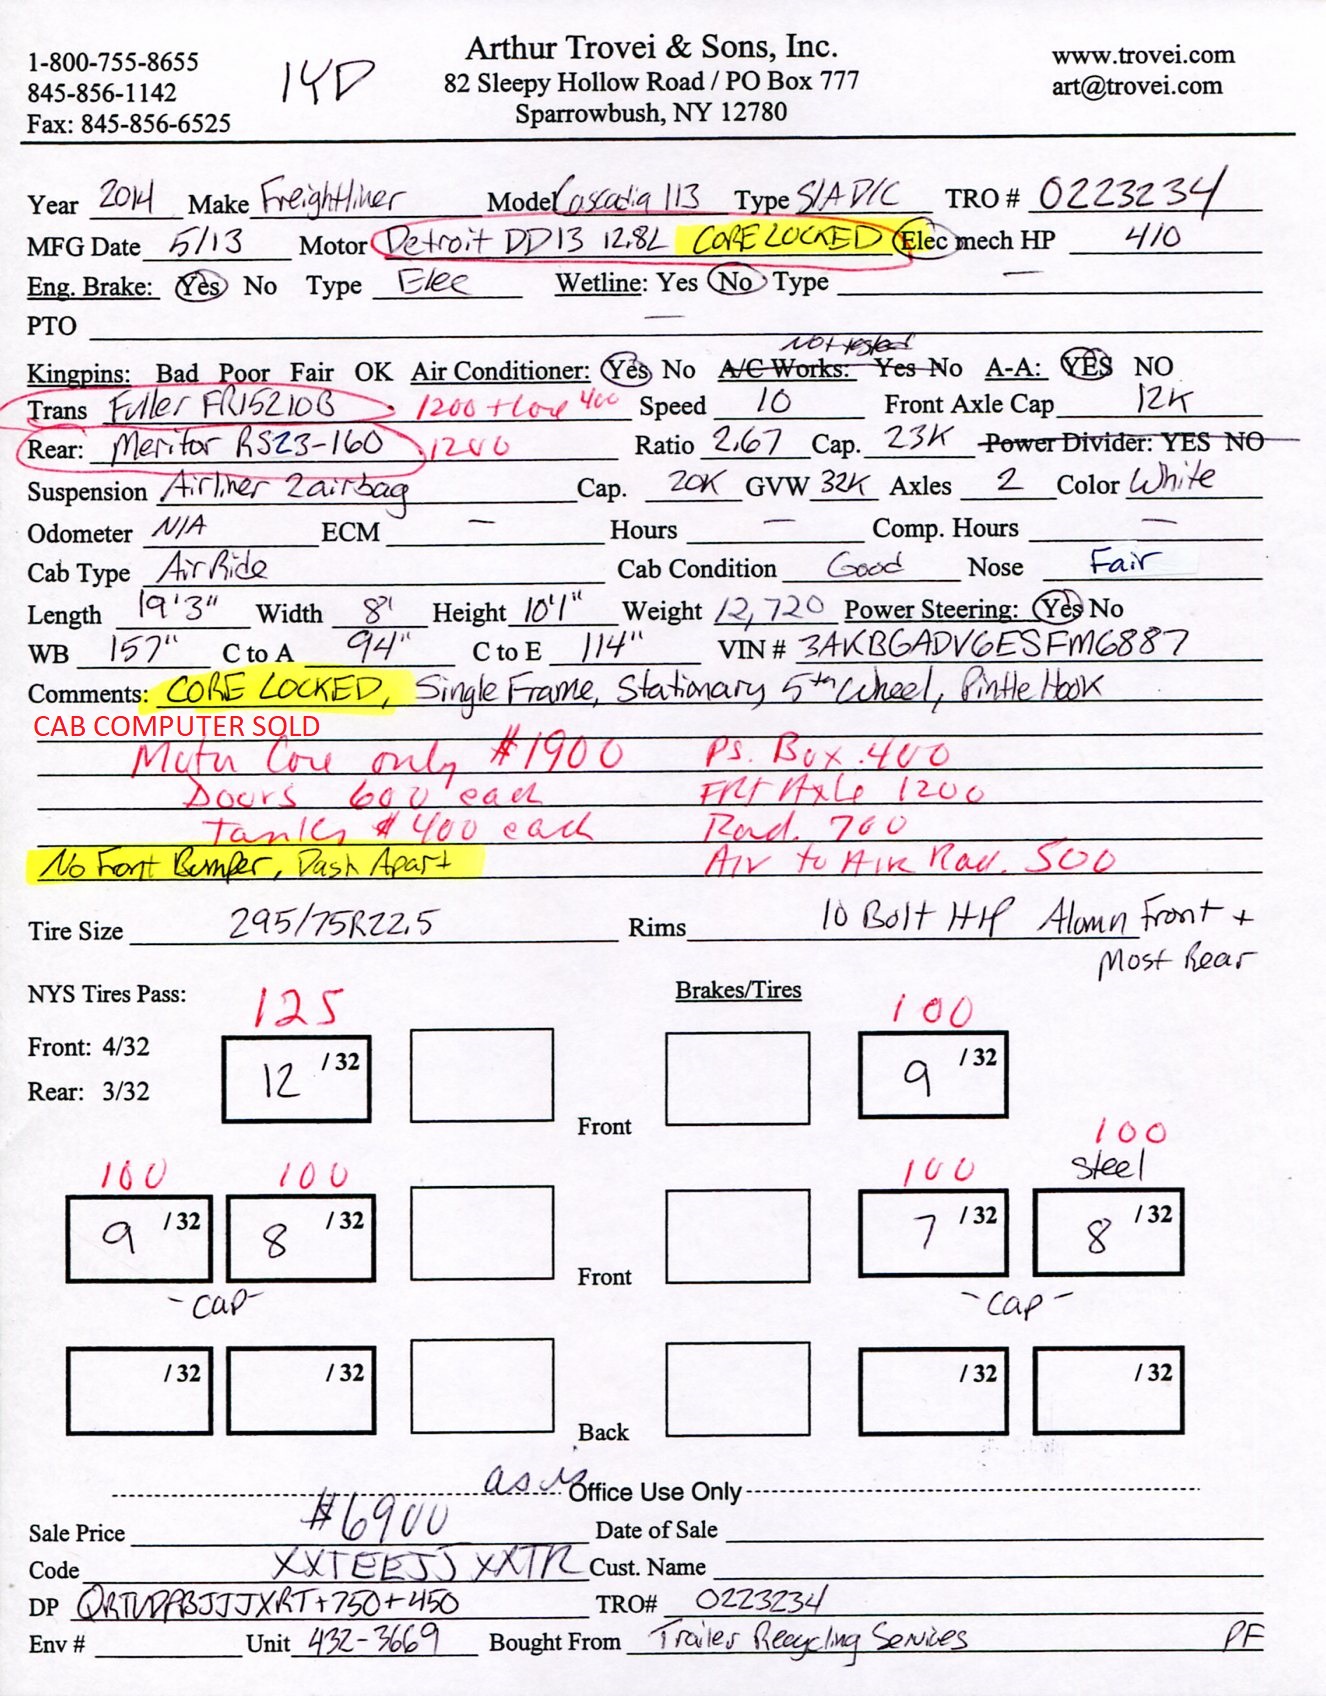 1-800-755-8655
845-856-1142
Fax: 845-856-6525
14D
Arthur Trovei & Sons, Inc.
82 Sleepy Hollow Road / PO Box 777
Sparrowbush, NY 12780
www.trovei.com
art@trovei.com
Year 2014 Make Freightliner Model Cascadia 113 Type S/A D/C TRO # 0223234
MFG Date 5/13 Motor Detroit DD13 12.8L CORE LOCKED Elec mech HP 410
Eng. Brake: Yes No Type Elec Wetline: Yes No Type —
PTO —
Not tested
Kingpins: Bad Poor Fair OK Air Conditioner: Yes No A/C Works: Yes No A-A: YES NO
Trans Fuller FR15210B 1200 + Core 400 Speed 10 Front Axle Cap 12K
Rear: Meritor RS23-160 1200 Ratio 2.67 Cap. 23K Power Divider: YES NO
Suspension Airliner 2airbag Cap. 20K GVW 32K Axles 2 Color White
Odometer N/A ECM — Hours — Comp. Hours —
Cab Type Air Ride Cab Condition Good Nose Fair
Length 19'3" Width 8' Height 10'1" Weight 12,720 Power Steering: Yes No
WB 157" C to A 94" C to E 114" VIN # 3AKBGADV6ESFM6887
Comments: CORE LOCKED, Single Frame, Stationary 5th Wheel, Pintle Hook
CAB COMPUTER SOLD
Motor Core only $1900 Ps. Box .400
Doors 600 each FRT Axle 1200
Tanks $400 each Rad. 700
No Front Bumper, Dash Apart Air to Air Rad. 500
Tire Size 295/75R22.5 Rims 10 Bolt HP Alumn Front +
Most Rear
NYS Tires Pass: 125 Brakes/Tires 100
Front: 4/32 12 /32 9 /32
Rear: 3/32
Front
100
100 100 100 Steel
9 /32 8 /32 7 /32 8 /32
Front
-Cap- -Cap-
/32 /32 /32 /32
Back
as is Office Use Only
Sale Price $6900 Date of Sale
Code XXTEEJJ XXTR Cust. Name
DP QRTUDPABJJJXRT+750+450 TRO# 0223234
Env # Unit 432-3669 Bought From Trailer Recycling Services PF